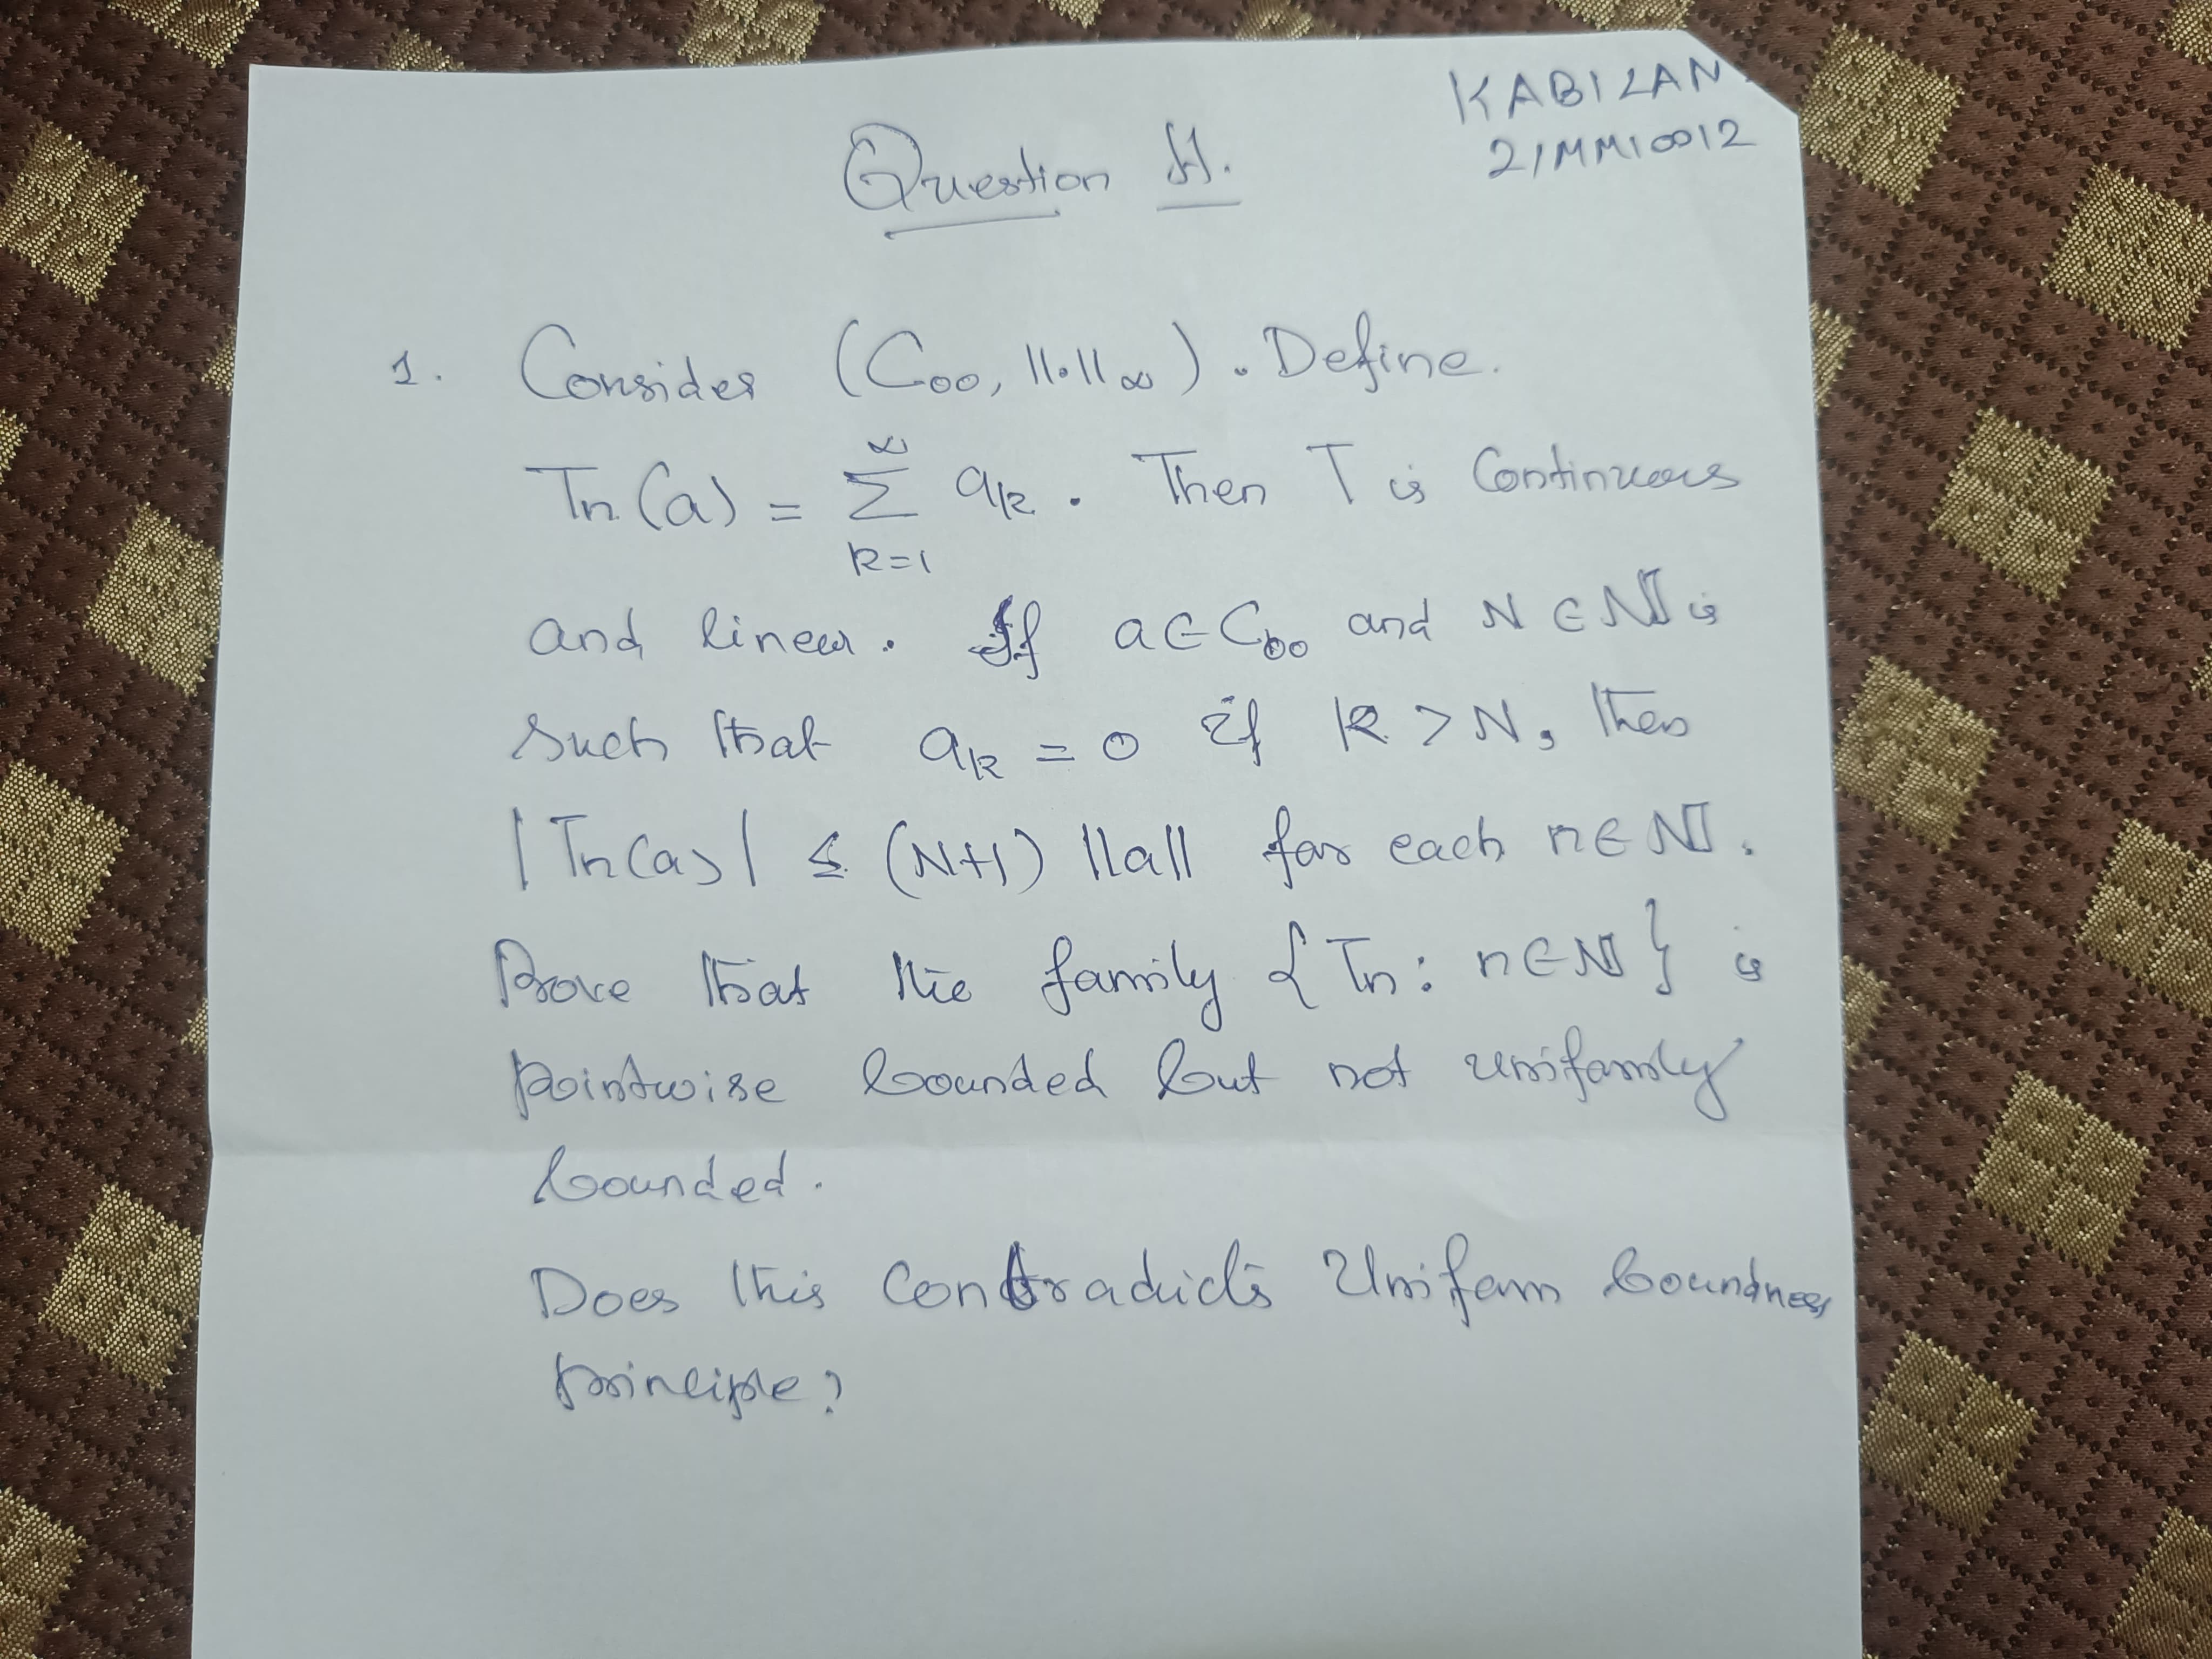 KABILAN
21MM10012
Question A.
1. Consider (C₀₀, ||.||∞). Define.
Tn(a) = ∞∑k=1 ak. Then T is Continuous
and linear. If a∈C₀₀ and N∈ℕ is
such that ak = 0 if k > N, then
|Tn(a)| ≤ (N+1) ||a|| for each n∈ℕ.
Prove that the family {Tn: n∈ℕ} is
pointwise bounded but not uniformly
bounded.
Does this contradicts Uniform boundness
principle?